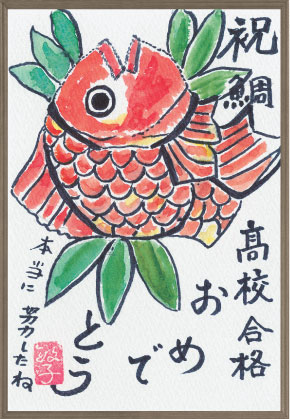 祝鯛
高校合格
おめでとう
本当に努力したね